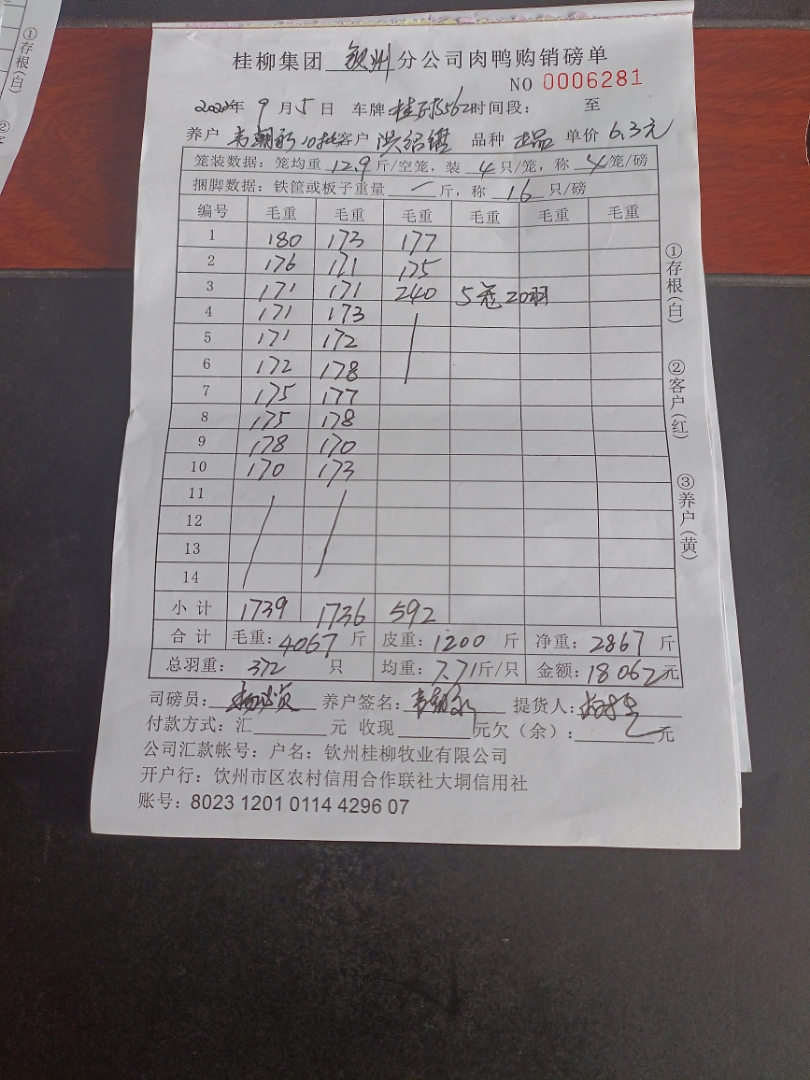 桂柳集团 钦州 分公司肉鸭购销磅单
NO 0006281
2022年 9 月 5 日 车牌 562 时间段: 至
养户 10批 客户 品种 正品 单价 6.3元
笼装数据: 笼均重 12.9 斤/空笼, 装 4 只/笼, 称 4 笼/磅
捆脚数据: 铁筐或板子重量 — 斤, 称 16 只/磅
编号 毛重 毛重 毛重 毛重 毛重 毛重
1 180 173 177
2 176 171 175
3 171 171 240 5笼20羽
4 171 173
5 171 172
6 172 178
7 175 177
8 175 178
9 178 170
10 170 173
11
12
13
14
小计 1739 1736 592
合计 毛重: 4067 斤 皮重: 1200 斤 净重: 2867 斤
总羽重: 372 只 均重: 7.71斤/只 金额: 18062元
司磅员: 养户签名: 提货人:
付款方式: 汇 元 收现 元欠 (余): 元
公司汇款帐号: 户名: 钦州桂柳牧业有限公司
开户行: 钦州市区农村信用合作联社大垌信用社
账号: 8023 1201 0114 4296 07
①存根(白)
②客户(红)
③养户(黄)
①存根(白)
②